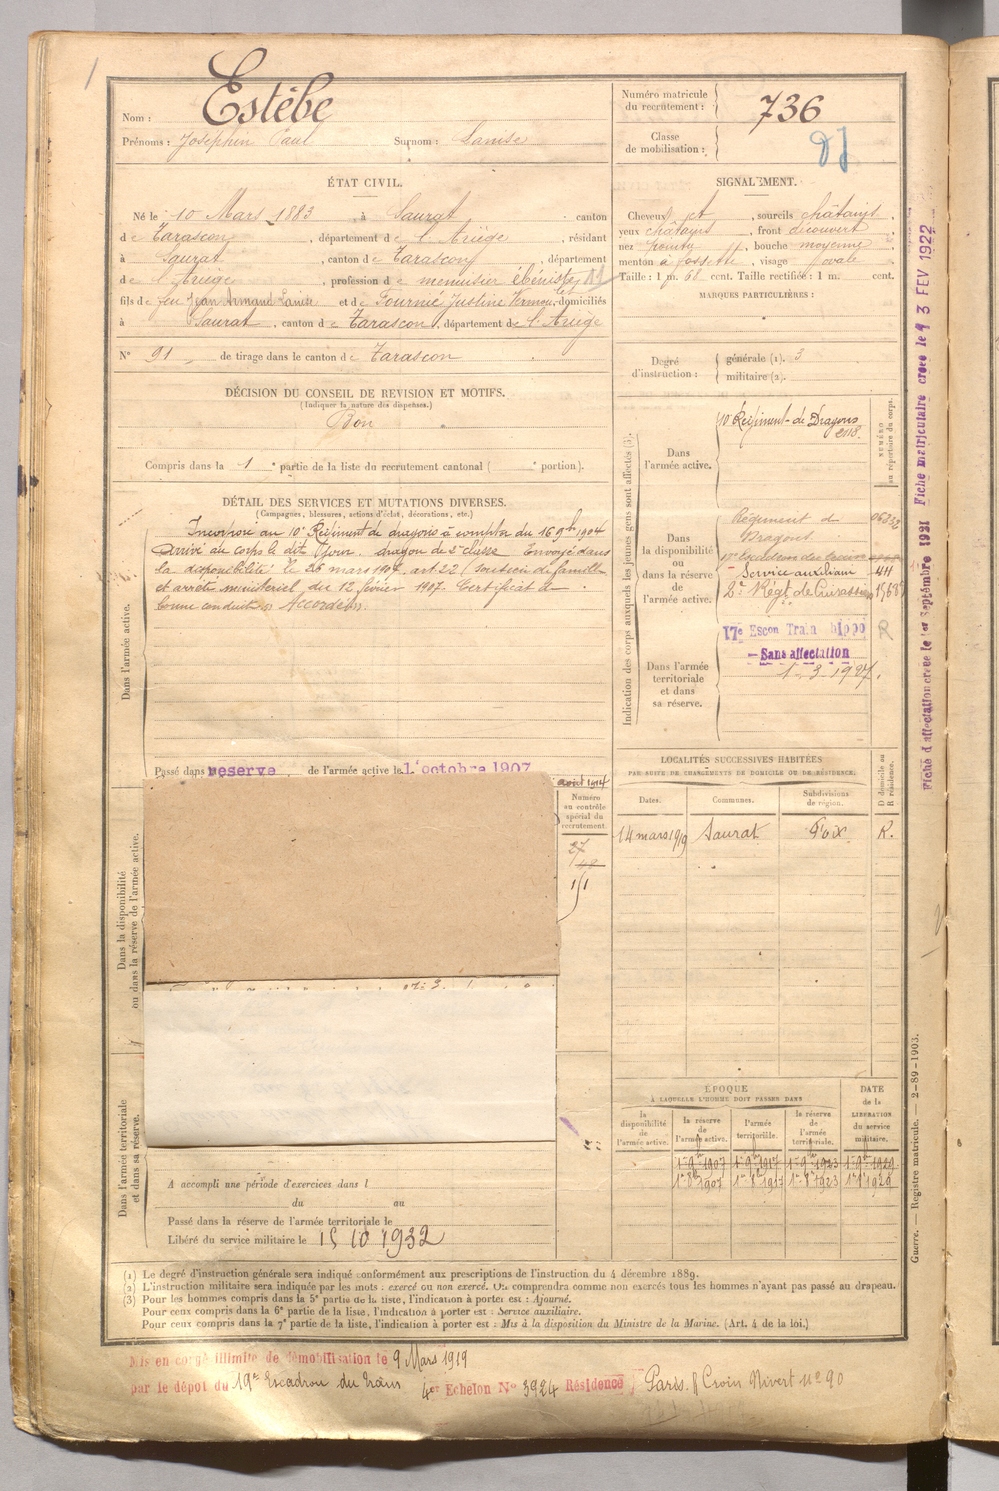 1
Nom : Estèbe
Prénoms : Joséphin Paul Surnom : Lanise
Numéro matricule du recrutement : 736
Classe de mobilisation :
ÉTAT CIVIL.
Né le 10 Mars 1883, à Saurat, canton
de Tarascon, département de l'Ariège, résidant
à Saurat, canton de Tarascon, département
de l'Ariège, profession de menuisier ébéniste
fils de feu Jean Armand Lanise et de Fournié Justine, domiciliés
à Saurat, canton de Tarascon, département de l'Ariège
N° 91 de tirage dans le canton de Tarascon
SIGNALEMENT.
Cheveux et, sourcils châtains,
yeux châtains, front découvert,
nez pointu, bouche moyenne,
menton à fossette, visage ovale
Taille : 1 m. 68 cent. Taille rectifiée : 1 m. cent.
MARQUES PARTICULIÈRES :
Degré d'instruction : générale (1). 3
militaire (2).
DÉCISION DU CONSEIL DE REVISION ET MOTIFS.
(Indiquer la nature des dispenses.)
Bon
Compris dans la 1e partie de la liste du recrutement cantonal ( e portion).
DÉTAIL DES SERVICES ET MUTATIONS DIVERSES.
(Campagnes, blessures, actions d'éclat, décorations, etc.)
Dans l'armée active.
Incorporé au 10e Régiment de dragons à compter du 16 9bre 1904
Arrivé au corps le dit jour. dragon de 2e classe Envoyé dans
la disponibilité le 26 mars 1907, art. 22 (soutien de famille
et arrêté ministériel du 12 février 1907. Certificat de
bonne conduite Accordé.
Passé dans reserve de l'armée active le 1 octobre 1907
Indication des corps auxquels les jeunes gens sont affectés (3).
NUMÉRO au répertoire du corps.
Dans l'armée active.
10e Régiment de Dragons
2118.
Dans la disponibilité ou dans la réserve de l'armée active.
Régiment de
Dragons
Service auxiliaire
2e Régt. de Cuirassiers
Dans l'armée territoriale et dans sa réserve.
17e Escon Train hippo R
Sans affectation
1-3-1927.
Fiche d'affectation créée le 1er Septembre 1921 Fiche matriculaire créée le 13 FEV 1922
Dans la disponibilité ou dans la réserve de l'armée active.
août 1914
Numéro au contrôle spécial du recrutement.
LOCALITÉS SUCCESSIVES HABITÉES
PAR SUITE DE CHANGEMENTS DE DOMICILE OU DE RÉSIDENCE.
Dates. Communes. Subdivisions de région. D domicile ou R résidence.
14 mars 1919 Saurat Foix R.
ÉPOQUE
À LAQUELLE L'HOMME DOIT PASSER DANS
DATE de la LIBÉRATION du service militaire.
la disponibilité de l'armée active. la réserve de l'armée active. l'armée territoriale. la réserve de l'armée territoriale.
1er 9bre 1907 1er 9bre 1917 1er 9bre 1923 1er 9bre 1929
1er 8bre 1907 1er 8bre 1917 1er 8bre 1923 1er 8bre 1929
Dans l'armée territoriale et dans sa réserve.
A accompli une période d'exercices dans l
du au
Passé dans la réserve de l'armée territoriale le
Libéré du service militaire le 15 10 1932
(1) Le degré d'instruction générale sera indiqué conformément aux prescriptions de l'instruction du 4 décembre 1889.
(2) L'instruction militaire sera indiquée par les mots : exercé ou non exercé. On comprendra comme non exercés tous les hommes n'ayant pas passé au drapeau.
(3) Pour les hommes compris dans la 5e partie de la liste, l'indication à porter est : Ajourné.
Pour ceux compris dans la 6e partie de la liste, l'indication à porter est : Service auxiliaire.
Pour ceux compris dans la 7e partie de la liste, l'indication à porter est : Mis à la disposition du Ministre de la Marine. (Art. 4 de la loi.)
Guerre. — Registre matricule. — 2-89-1903.
Mis en congé illimité de démobilisation le 9 Mars 1919
par le dépôt du 19e Escadron du train 4er Echelon N° 3924 Résidence Paris, R Croix Nivert n° 90